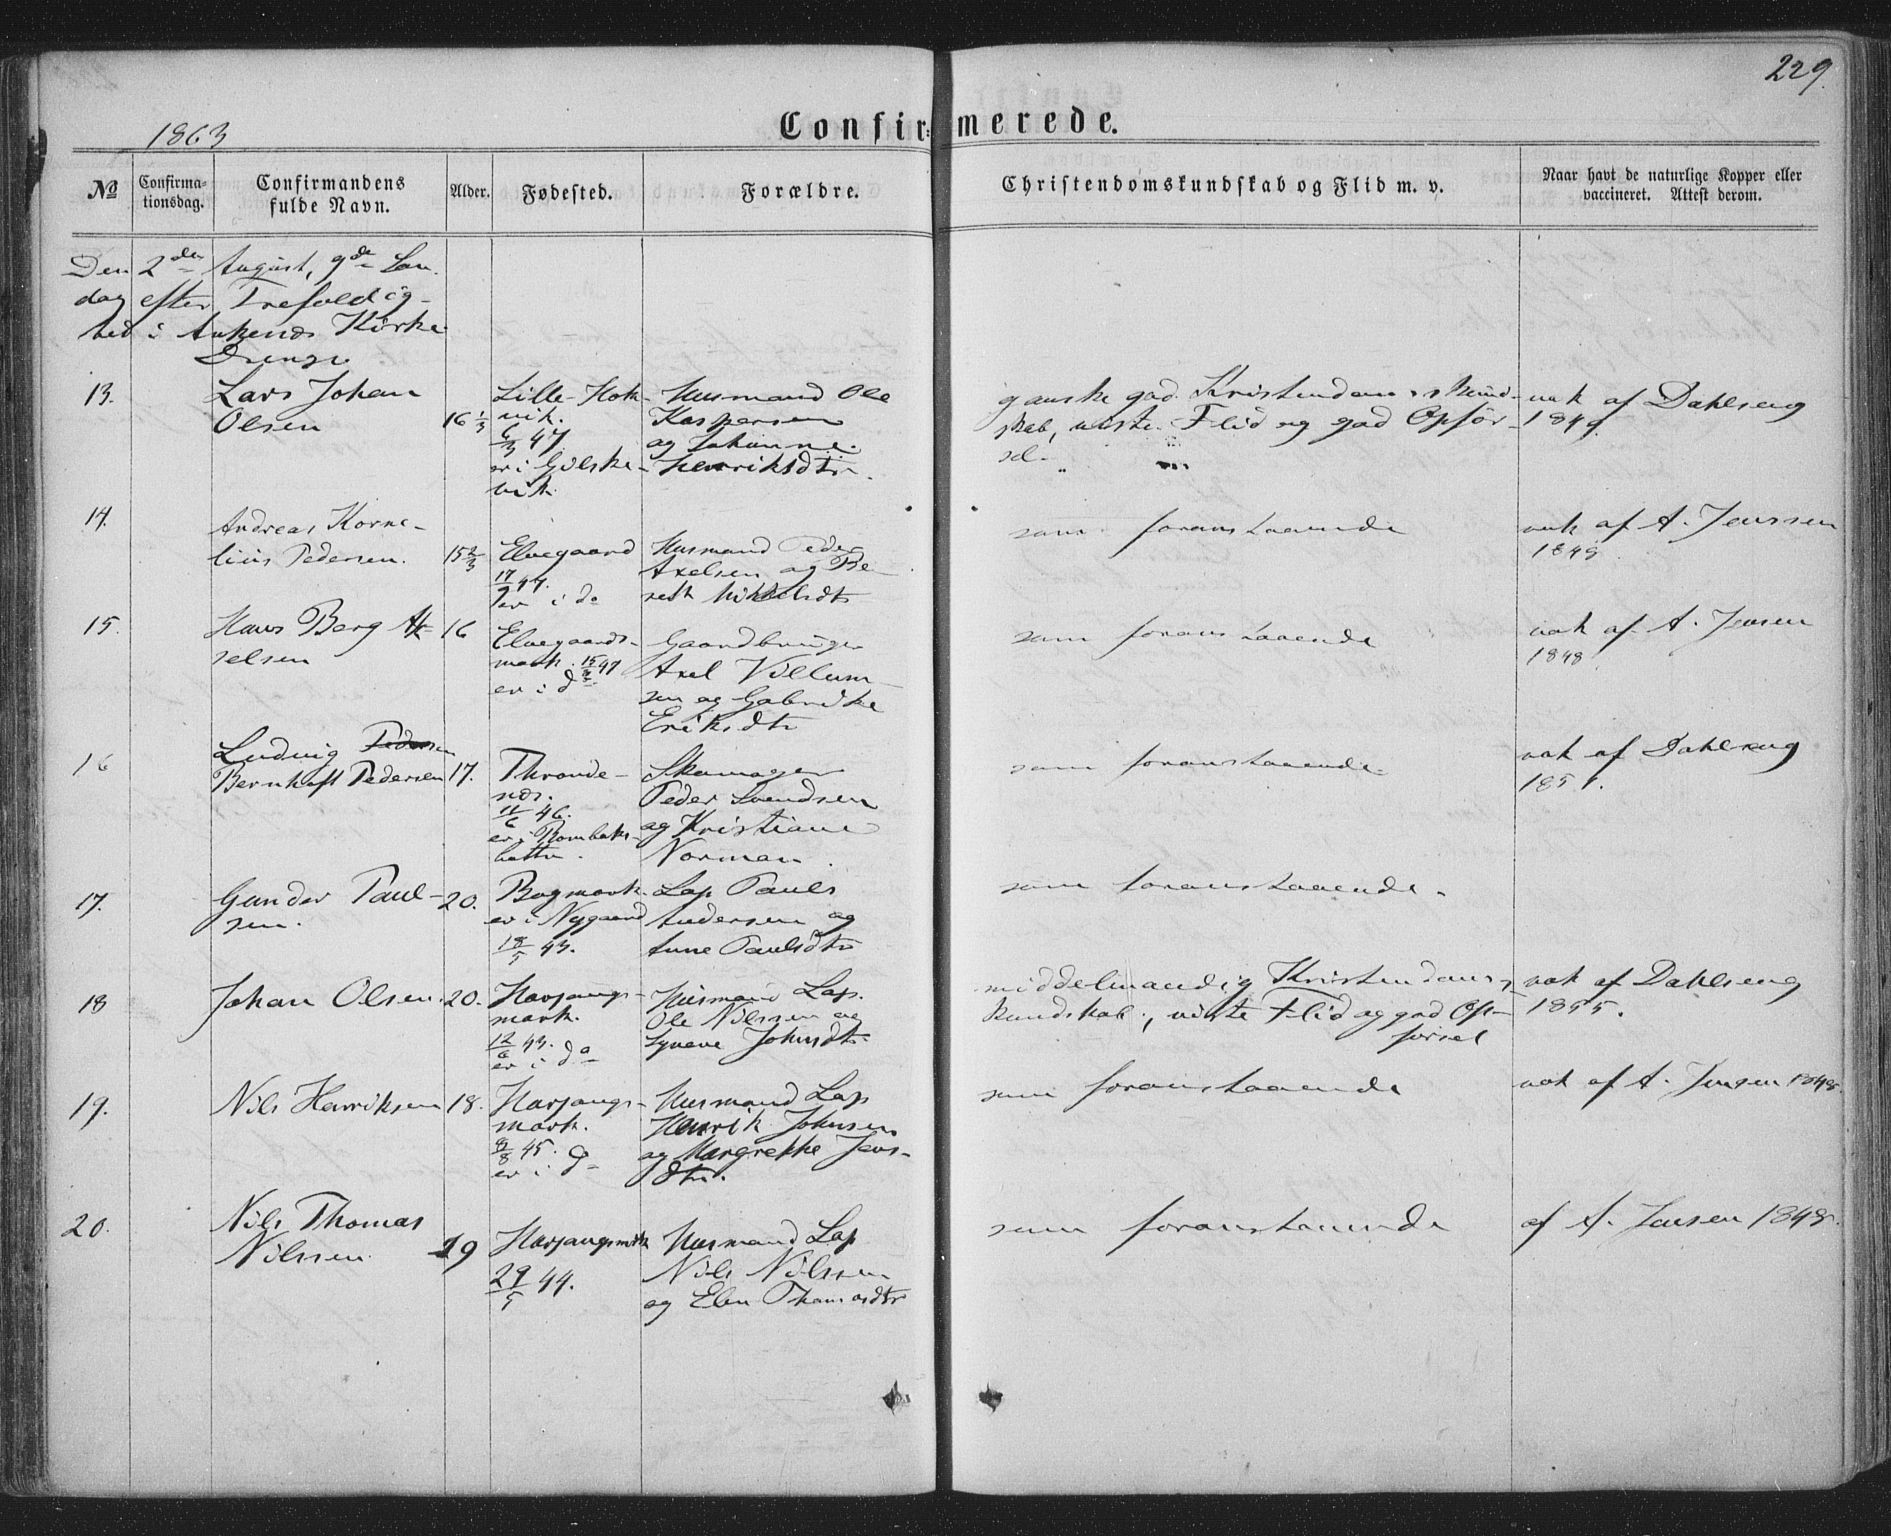 229.
1863
Confirmerede.
No
Confirmationsdag.
Confirmandens fulde Navn.
Alder.
Fødested.
Forældre.
Christendomskundskab og Flid m. v.
Naar havt de naturlige Kopper eller vaccineret. Attest derom.
Den 2den August, 9de Søn-
dag efter Trefoldig-
hed i Ankenes Kirke
Drenge
13. Lars Johan Olsen 16 1/3 Lille-Hok-
vik. 6/3 47. er i Gilske-
vik. Husmand Ole
Kaspersen
og Johanne
Henriksdtr. ganske god Kristendomskund-
skab, viste Flid og god Opfør-
sel. vak af Dahlseng
1849.
14. Andreas Korne-
lius Pedersen. 15 2/3 Elvegaard
17/ 47.
er i do Husmand Peder
Axelsen og Be-
rett Mikkelsdtr som foranstaaende vak af A. Jenssen
1849
15. Hans Berg Ak-
selsen 16 Elvegaards-
mark. 15/ 47
er i do Gaardbruger
Axel Villum-
sen og Gabrikke
Eriksdtr som foranstaaende vak af A. Jensen
1848
16 Ludvig Pedersen
Bernhoft Pedersen 17. Thronde-
næs.
11/6 46.
er i Rombaks-
botten. Skomager
Peder Svendsen
og Kristiane
Norman. som foranstaaende vak af Dahlseng
1851.
17. Gunder Paul-
sen. 20. Bogmark
er i Nygaard
18/5 43. Lap Pauls
Andersen og
Anne Paulsdtr som foranstaaende.
18 Johan Olsen. 20. Harjangs-
mark.
12/6 43.
er i do Husmand Lap.
Ole Nilssen og
Syneve Johnsdtr. middelmaadig Kristendoms-
kundskab, viste Flid og god Op-
førsel vak af Dahlseng
1855.
19. Nils Henriksen 18. Harjangs-
mark.
8/8 45.
er i do Husmand Lap
Henrik Johnsen
og Margrethe Jens-
dtr. som foranstaaende vak af A. Jensen 1848.
20. Nils Thomas
Nilssen. 19 Harjangsmrk
29/5 44. Husmand Lap
Nils Nilssen
og Elen Thomasdtr som foranstaaende af A. Jensen 1848.